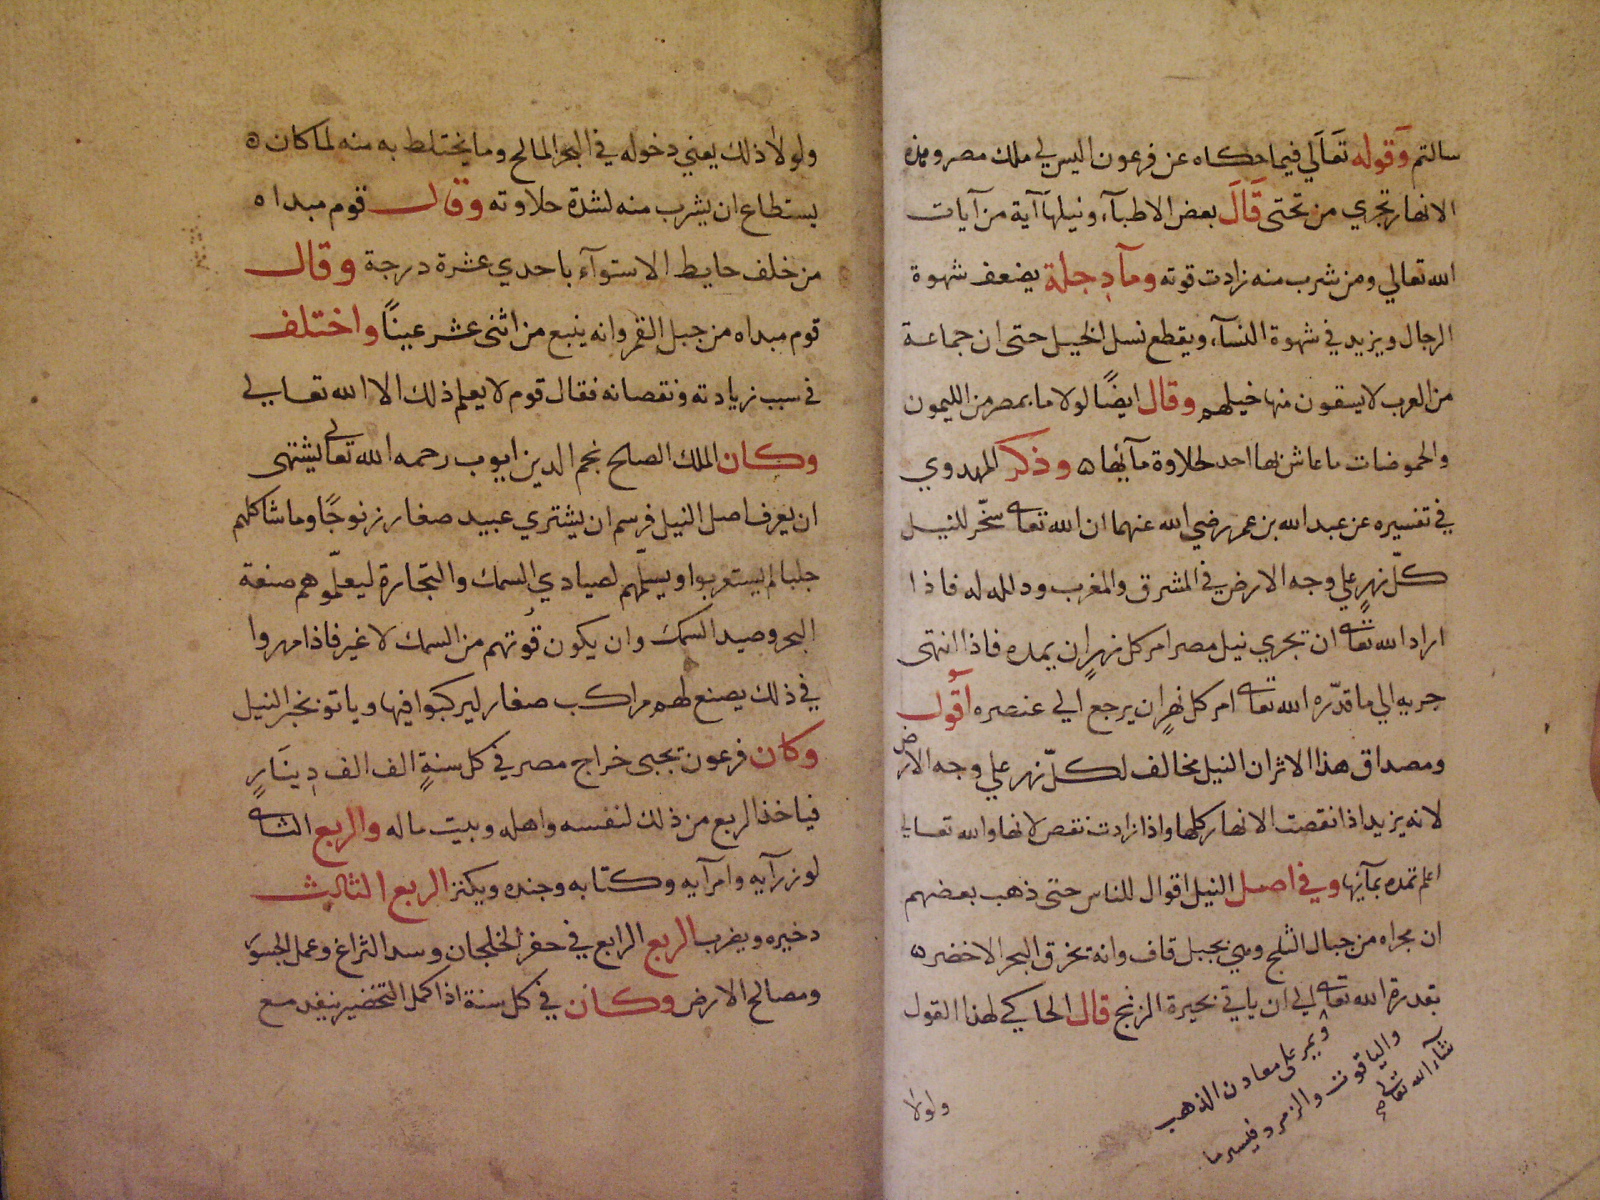 سالتم وقوله تعالي فيما حكاه عن فرعون اليس لي ملك مصر وهذه
الانهار تجري من تحتى قال بعض الاطباء ونيلها آية من آيات
الله تعالي ومن شرب منه زادت قوته ومآ دجلة يضعف شهوة
الرجال ويزيد في شهوة النسآء ويقطع نسل الخيل حتى ان جماعة
من العرب لا يسقون منها خيلهم وقال ايضًا لولا ما بمصر من الليمون
والحموضات ما عاش بها احد لحلاوة مآئها ه وذكر المهدوي
في تفسيره عن عبد الله بن عمر رضي الله عنهما ان الله تعالى سخّر للنيل
كلّ نهرٍ علي وجه الارض في المشرق والمغرب وذلله له فاذا
اراد الله تعالى ان تجري نيل مصر امر كل نهرٍ ان يمده فاذا انتهى
جريه الي ما قدّره الله تعالى امر كل نهرٍ ان يرجع الي عنصره اقول
ومصداق هذا الاثر ان النيل مخالف لكلّ نهر علي وجه الارض
لانه يزيد اذا نقصت الانهار كلها واذا زادت نقص لانها والله تعالي
اعلم تمده بمآئها وفي اصل النيل اقوال للناس حتى ذهب بعضهم
ان مجراه من جبال الثلج وهي بجبل قاف وانه تخرق البحر الاخضر ه
بقدرة الله تعالى الي ان ياتي بحيرة الزنج قال الحاكي لهذا القول
ويمر على معادن الذهب
والياقوت والزمرد فيسير ما
شآء الله تعالى
ولولا
ولولا ذلك يعني دخوله في البحر المالح وما يختلط به منه لما كان ه
يستطاع ان يشرب منه لشدة حلاوته وقال قوم مبداه
من خلف حايط الاستوآء باحدي عشرة درجة وقال
قوم مبداه من جبل القمر وانه ينبع من اثنى عشر عينًا واختلف
في سبب زيادته ونقصانه فقال قوم لا يعلم ذلك الا الله تعالي
وكان الملك الصلح نجم الدين ايوب رحمه الله تعالي يشتهى
ان يعرف اصل النيل فرسم ان يشتري عبيد صغار زنوجًا وما شاكلهم
جلبا لم يستعربوا ويسلّمهم لصيادي السمك والتجارة ليعلّموهم صنعة
البحر وصيد السمك وان يكون قوتهم من السمك لا غير فاذا مهروا
في ذلك يصنع لهم مراكب صغار ليركبوا فيها وياتو بخبر النيل
وكان فرعون تجبى خراج مصر في كل سنةٍ الف الف دينَارٍ
فياخذ الربع من ذلك لنفسه واهله وبيت ماله والربع الثانى
لوزرآيه وامرآيه وكتابه وجنده ويكنز الربع الثالث
دخيره ويضرب الربع الرابع في حفر الخلجان وسد التراغ وعمل الجسور
ومصالح الارض وكان في كل سنة اذا كمل التخضير ينفد مع